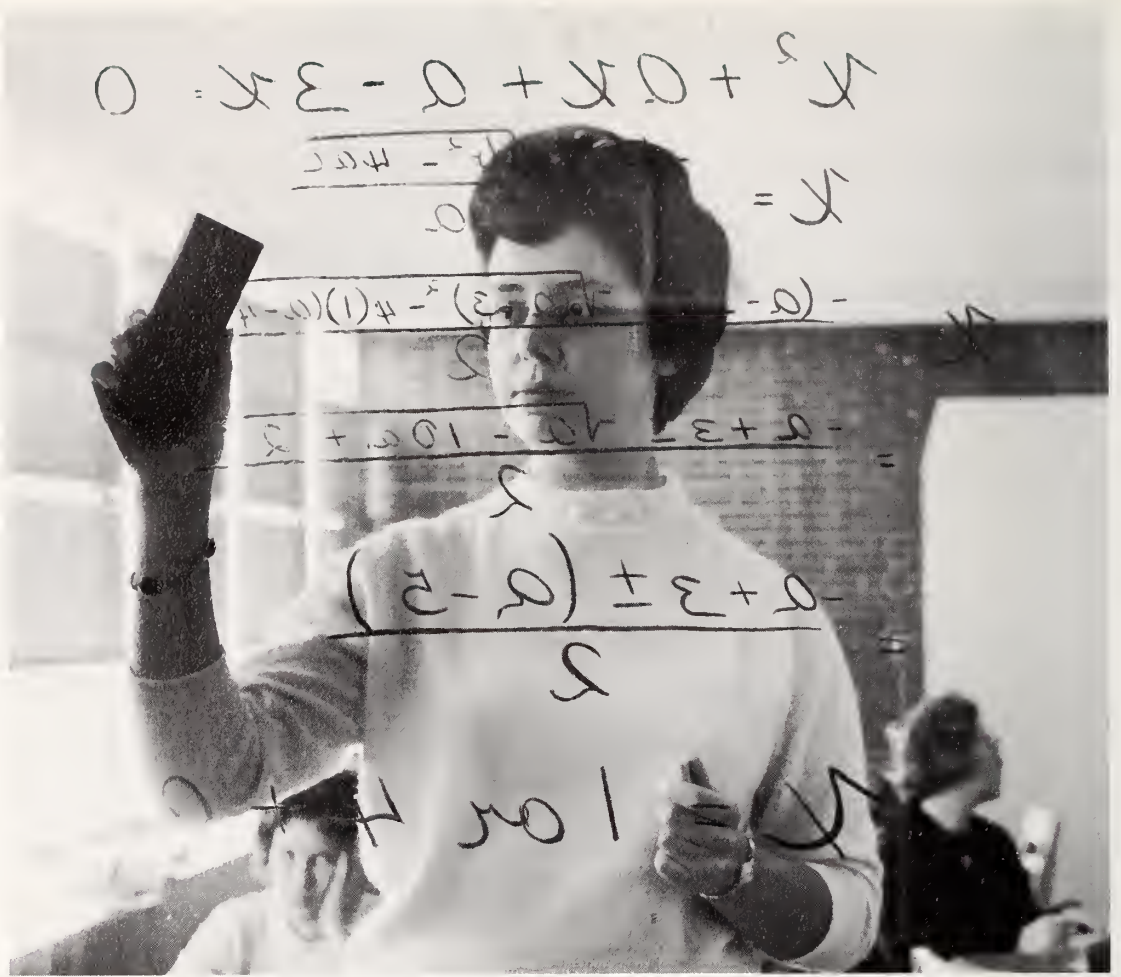 x² + ax + a - 3x = 0
x = ² - 4ac
a
x -(a- 3)² - 4(1)(a-4
2
= -a + 3 - √a - 10a + 2
2
= -a + 3 ± (a - 5)
2
x = 1 or 4 +